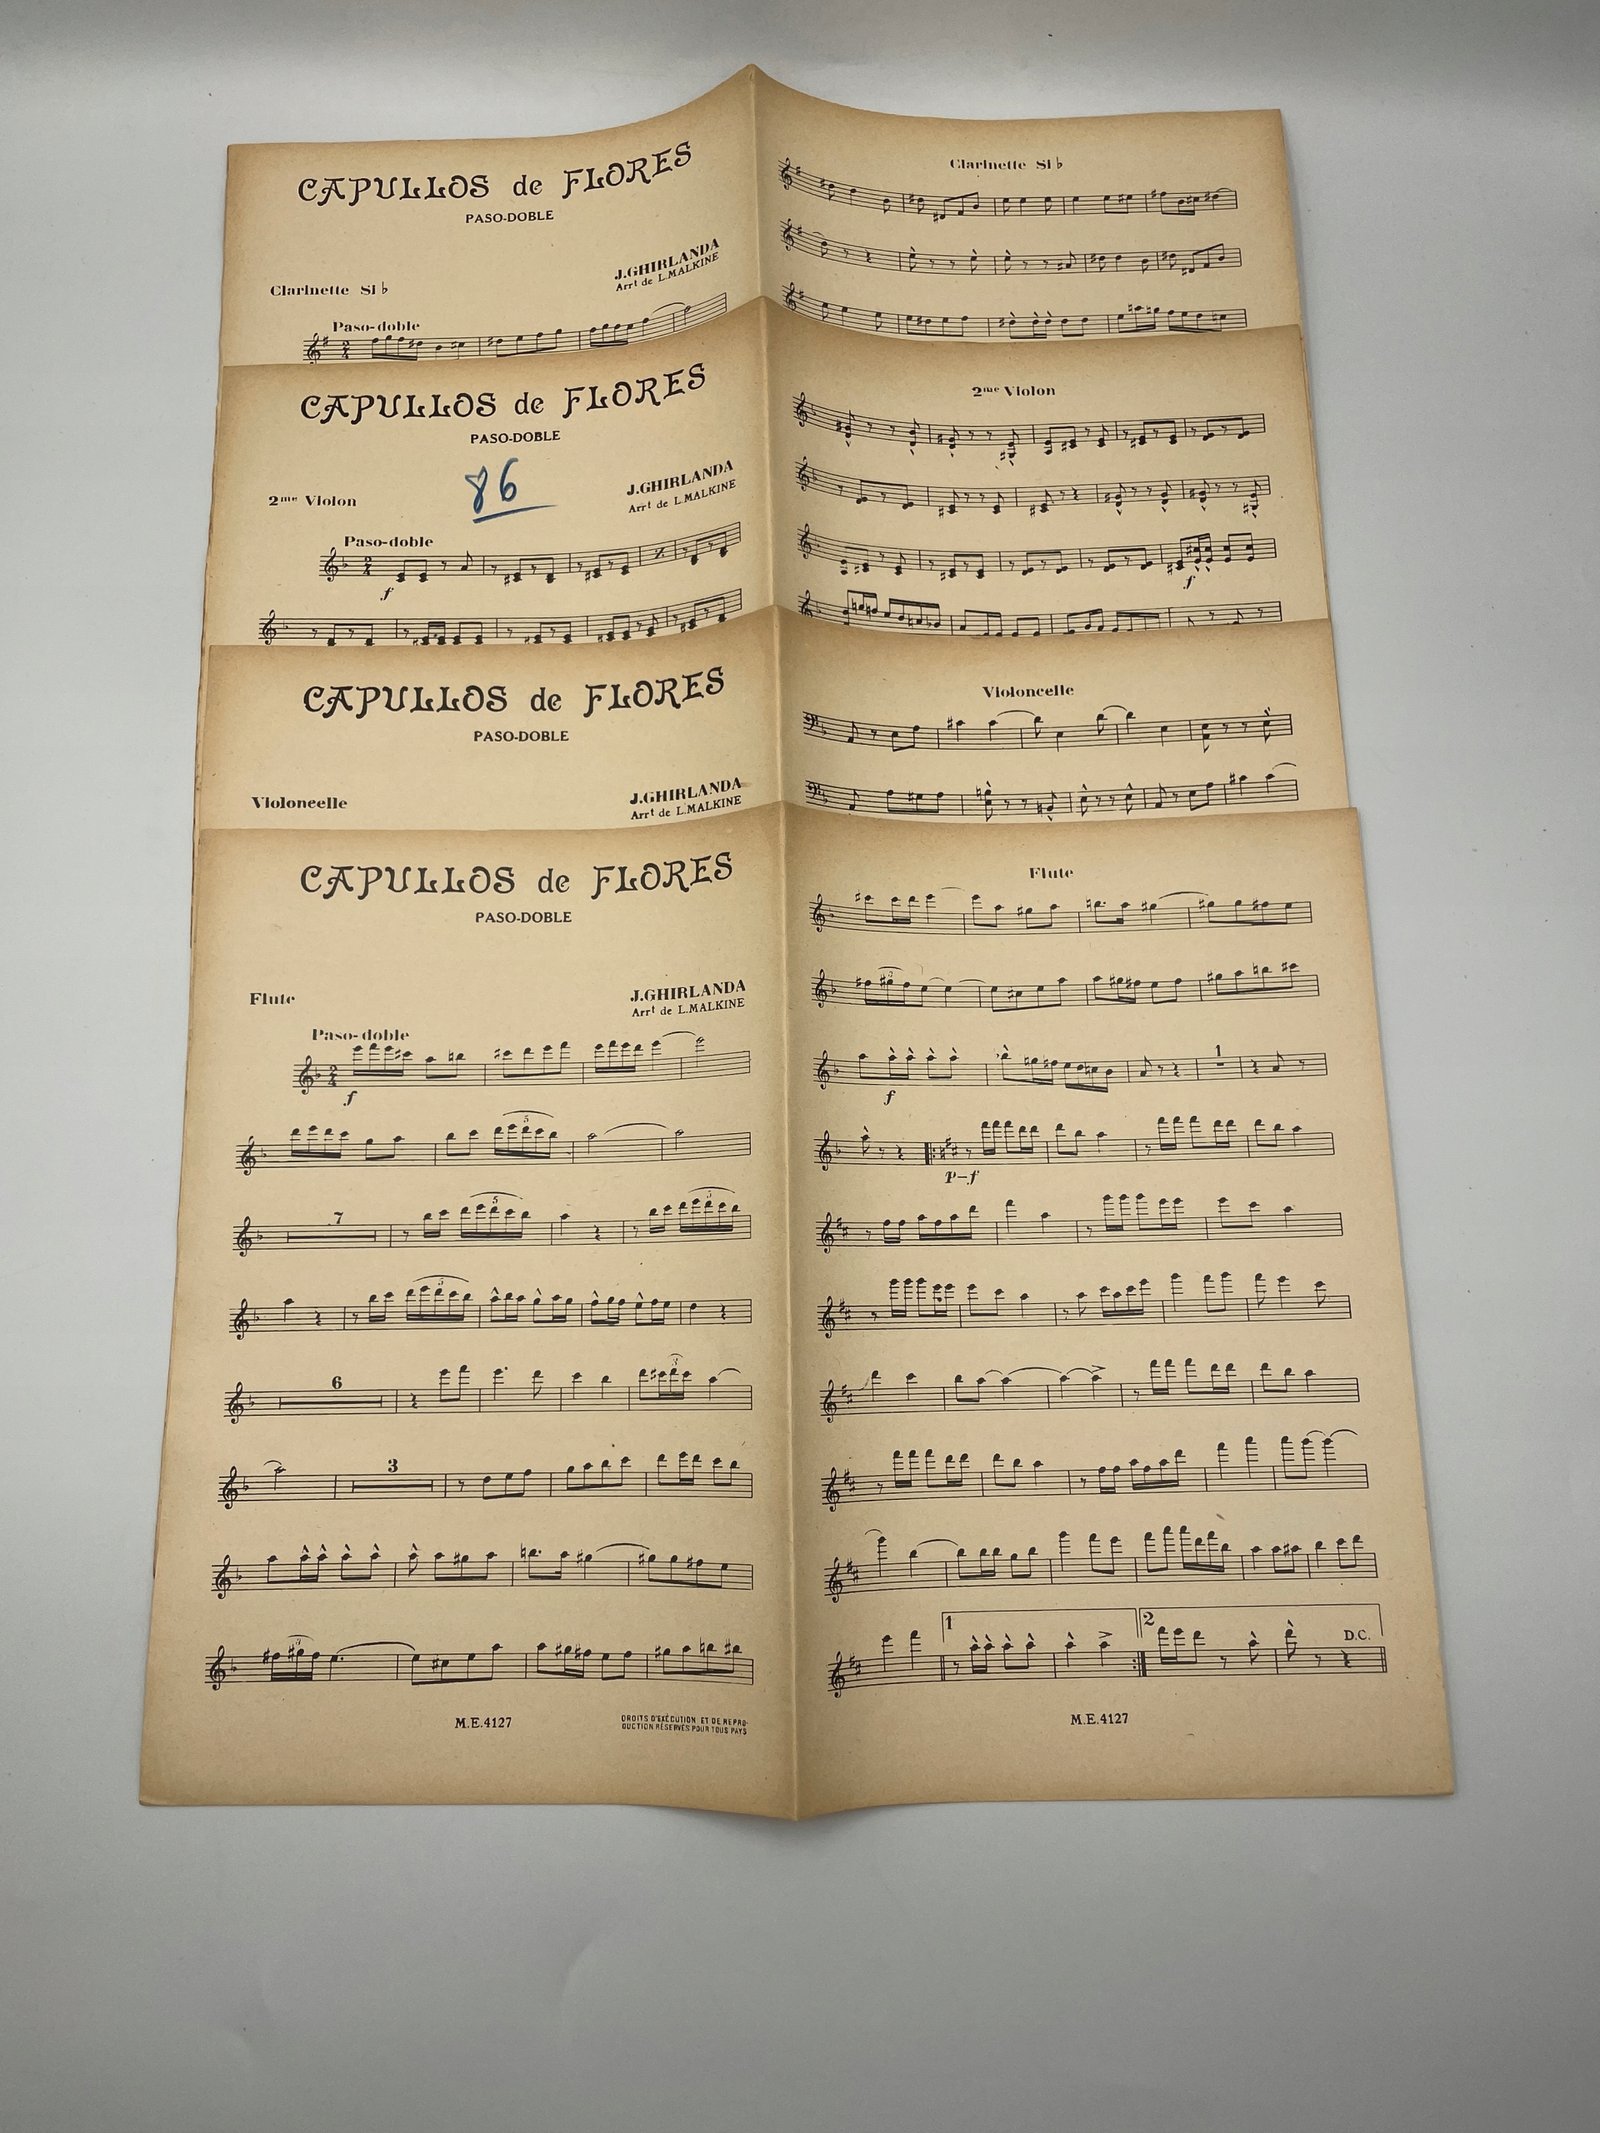 CAPULLOS de FLORES
PASO-DOBLE
J.GHIRLANDA
Arrt de L.MALKINE
Clarinette Si♭
Paso-doble
Clarinette Si♭
CAPULLOS de FLORES
PASO-DOBLE
86
2me Violon
J.GHIRLANDA
Arrt de L.MALKINE
Paso-doble
f
2me Violon
f
CAPULLOS de FLORES
PASO-DOBLE
Violoncelle
J.GHIRLANDA
Arrt de L.MALKINE
Violoncelle
CAPULLOS de FLORES
PASO-DOBLE
Flute
J.GHIRLANDA
Arrt de L.MALKINE
Paso-doble
f
5
7
5
5
5
6
3
3
3
M.E.4127
DROITS D'EXÉCUTION ET DE REPRO-
DUCTION RÉSERVÉS POUR TOUS PAYS
Flute
3
1
f
p-f
1
2
D.C.
M.E.4127